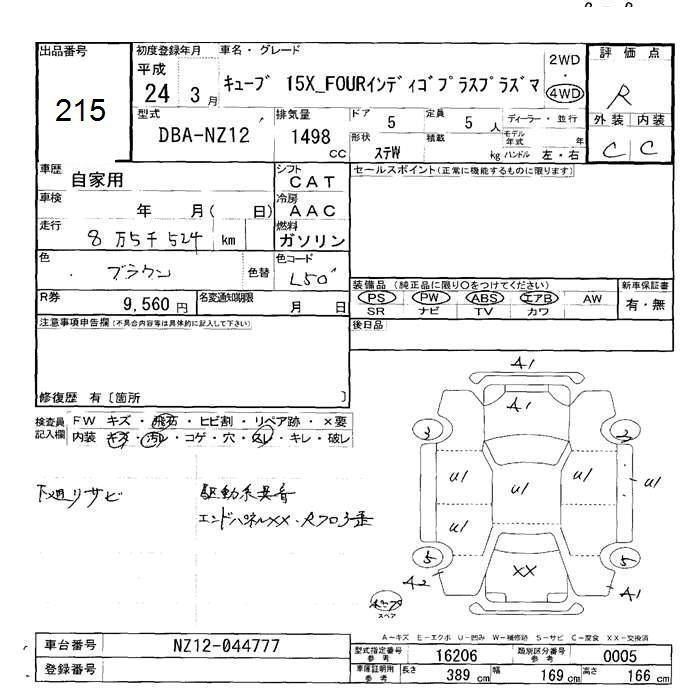 出品番号 初度登録年月 車名・グレード 評価点
215
平成 24 3月 キューブ 15X_FOURインディゴプラスプラズマ 2WD・4WD R
型式 DBA-NZ12 排気量 1498 CC
ドア 5 定員 5人 ディーラー・並行
形状 ステW 積載 kg モデル年式 年 ハンドル 左・右
外装 内装
C C
車歴 自家用 シフト CAT セールスポイント(正常に機能するものに限ります)
車検 年 月( 日) 冷房 AAC
走行 8万5千524 km 燃料 ガソリン
色 ブラウン 色替 色コード L50
装備品 (純正品に限り○をつけてください) 新車保証書
PS PW ABS エアB AW 有・無
SR ナビ TV カワ
R券 9,560円 名変通知期限 月 日
後日品
注意事項申告欄(不具合内容等は具体的に記入して下さい)
修復歴 有〔箇所 〕
検査員記入欄 FW キズ・飛石・ヒビ割・リペア跡・×要
内装 キズ・汚レ・コゲ・穴・スレ・キレ・破レ
下廻りサビ 駆動系異音
エンドパネルXX・
A1
A1
3 3
U1 U1 U1 U1
U1
5 5
A2 XX A1
スペア
A-キズ E-エクボ U-凹み W-補修跡 S-サビ C-腐食 XX-交換済
車台番号 NZ12-044777
型式指定番号 参考 16206 類別区分番号 参考 0005
登録番号
車庫証明用 参考 長さ 389 cm 幅 169 cm 高さ 166 cm